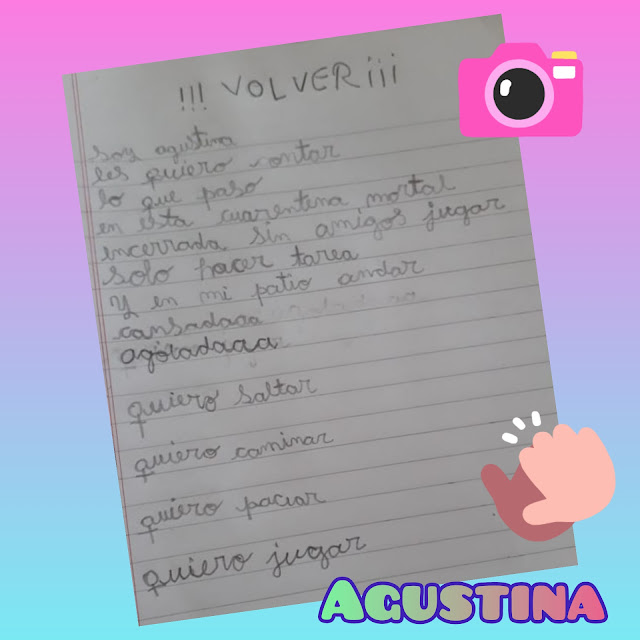 !!! VOLVER ¡¡¡
soy agustina
les quiero contar
lo que paso
en esta cuarentena mortal
encerrada sin amigos jugar
solo hacer tarea
Y en mi patio andar
cansadaaa
agotadaaa
quiero saltar
quiero caminar
quiero paciar
quiero jugar
AGUSTINA